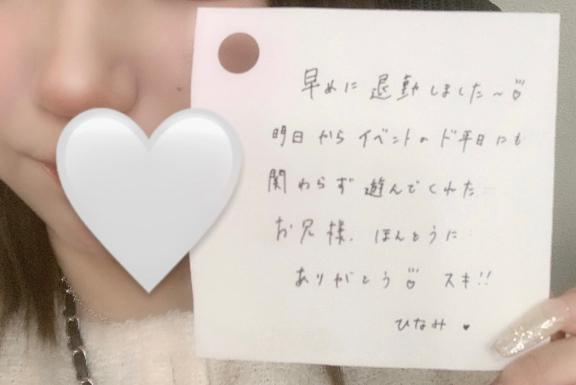 早めに退勤しました〜
明日からイベントのド平日にも
関わらず遊んでくれた
お兄様、ほんとうに
ありがとう スキ!!
ひなみ ♥